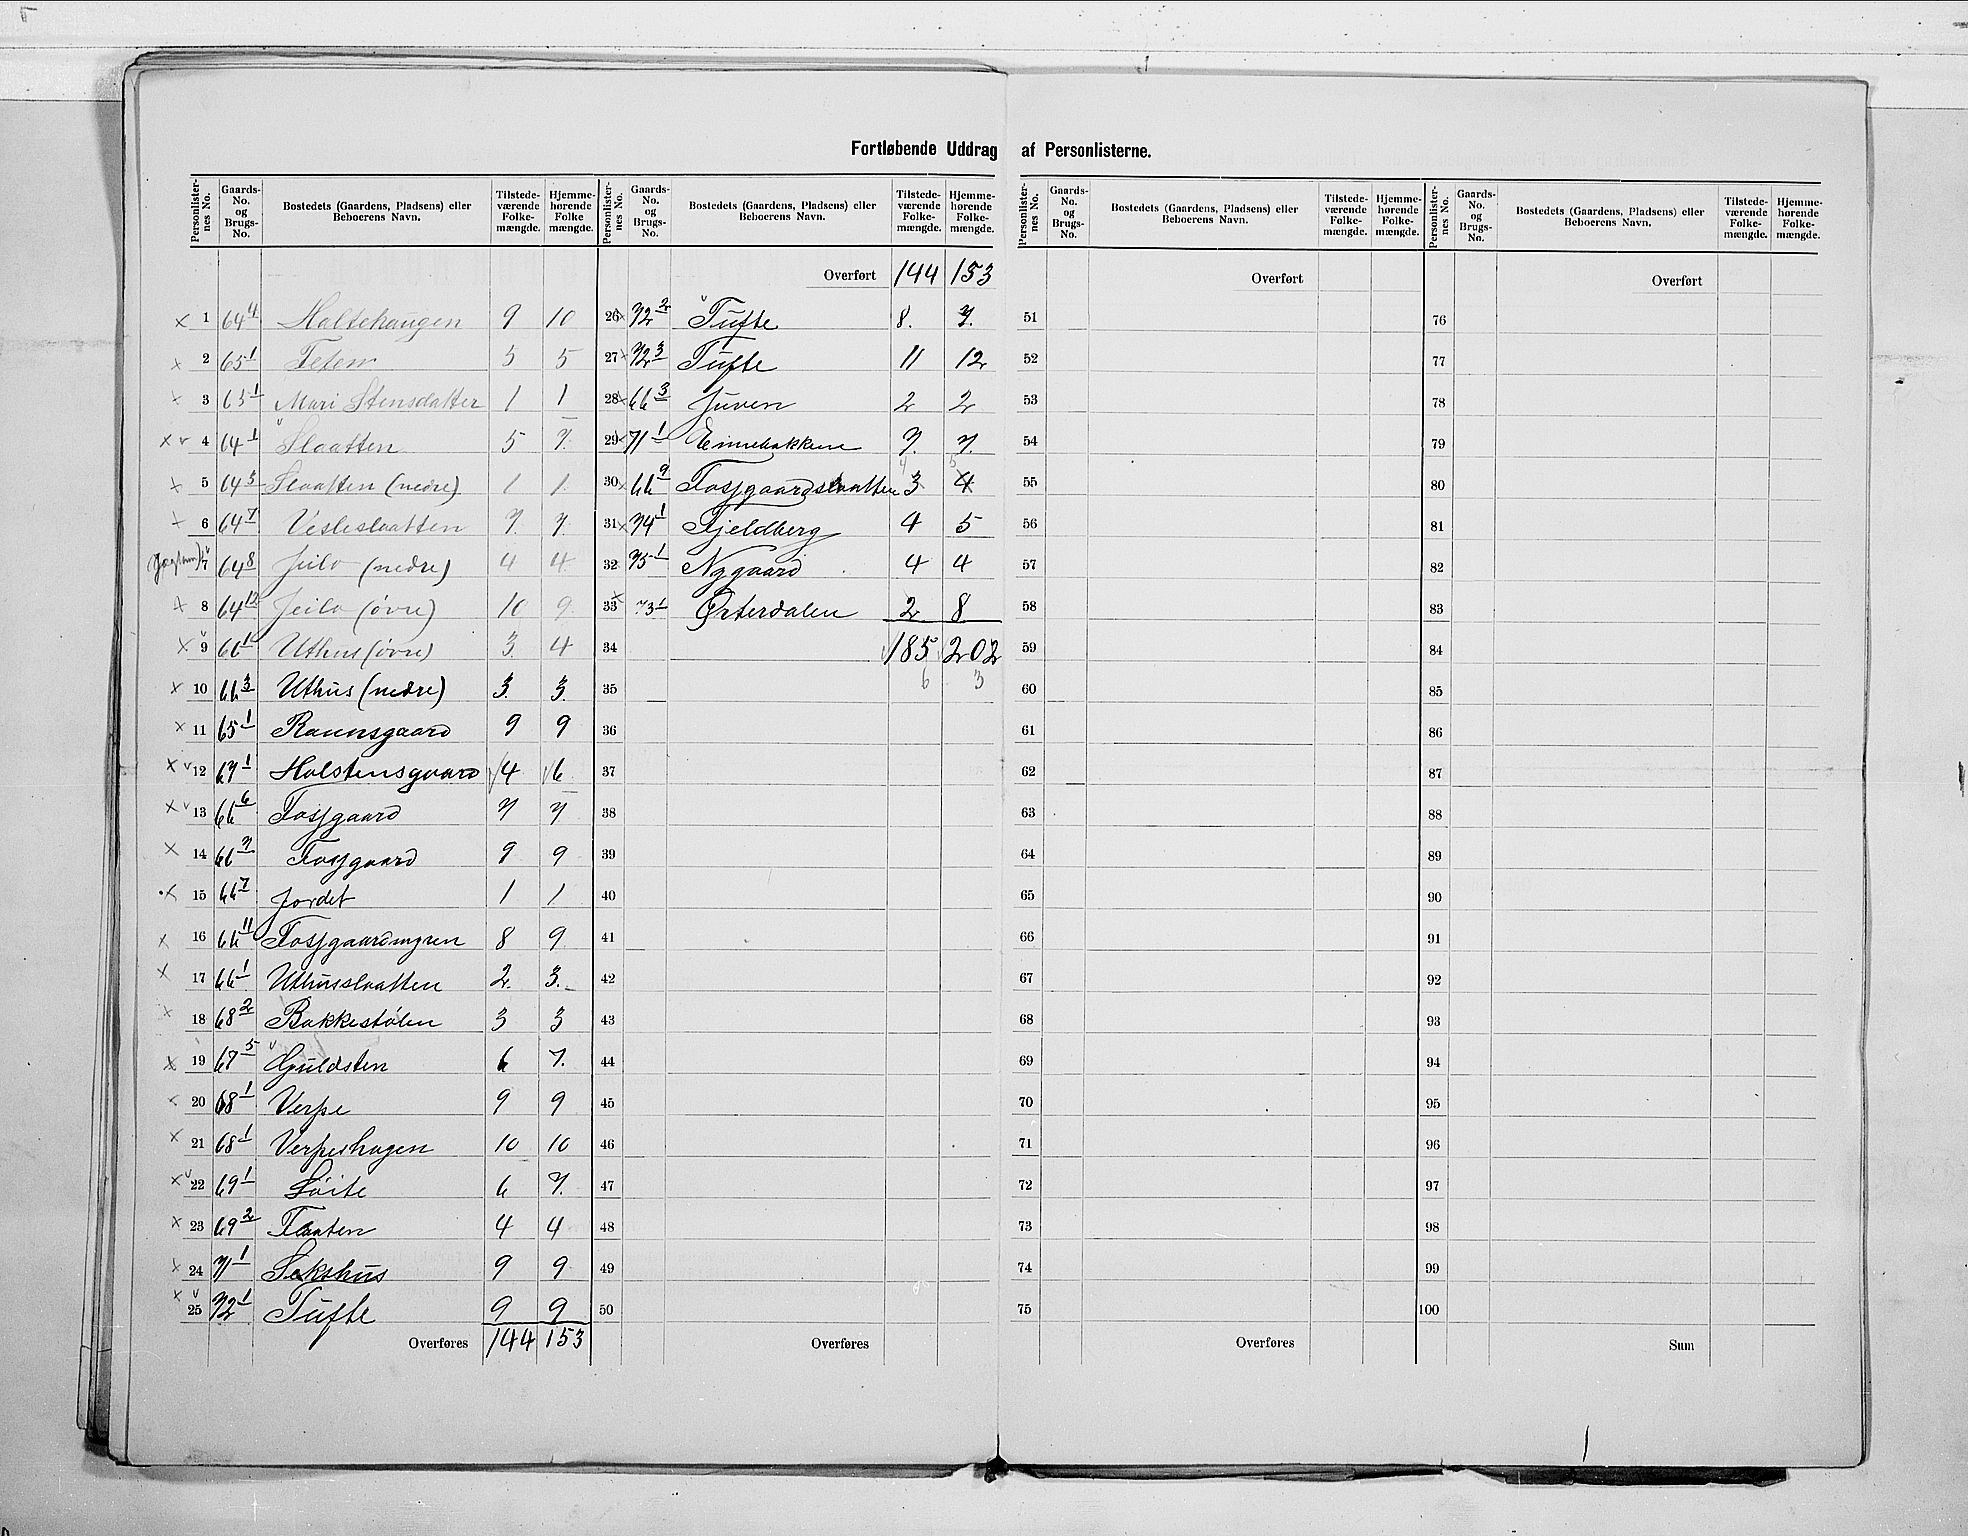 Fortløbende Uddrag af Personlisterne.
Personlister- nes No. | Gaards- No. og Brugs- No. | Bostedets (Gaardens, Pladsens) eller Beboerens Navn. | Tilstede- værende Folke- mængde. | Hjemme- hørende Folke mængde.
x 1 64 4 Haltehaugen 9 10
x 2 65 1 Feten 5 5
x 3 65 1 Mari Stensdatter 1 1
x v 4 64 1 Slaatten 5 7.
x 5 64 3 Slaatten (nedre) 1 1
x 6 64 7 Vesleslaatten 7. 7.
7 64 8 Jeilo (nedre) 4 4
x 8 64 12 Jeilo (øvre) 10 9
x v 9 66 1 Uthus (øvre) 3. 4
x 10 66 3 Uthus (nedre) 3. 3.
x 11 65 1 Raunsgaard 9 9
x v 12 67 1 Holstensgaard 4 6
x v 13 66 6 Fossgaard 7 7
x 14 66 7 Fossgaard 9 9
x 15 66 7 Jordet 1 1
x 16 66 11 Fossgaardmyren 8 9
x 17 66 1 Uthusslaatten 2 3.
x 18 68 2 Bakkestølen 3 3
x 19 67 5 Guldsten 6 7.
x 20 68 1 Verpe 9 9
x 21 68 1 Verpeshagen 10 10
x v 22 69 1 Løite 6 7.
x 23 69 2 Flaaten 4 4
x 24 71 1 Sekshus 9 9
x v 25 72 1 Tufte 9 9
Overføres 144 153
Personlister- nes No. | Gaards- No. og Brugs- No. | Bostedets (Gaardens, Pladsens) eller Beboerens Navn. | Tilstede- værende Folke- mængde. | Hjemme- hørende Folke- mængde.
Overført 144 153
26 x 72 2 Tufte 8. 7.
27 x 72 3 Tufte 11 12
28 x 66 3 Juven 2 2
29 x 71 1 Einebakkene 7. 7.
4 5
30 x 66 9 Fossgaardslaatten 3 4
31 x 74 1 Fjeldberg 4 5
32 x 75 1 Nygaard 4 4
33 x 73 1 Østerdalen 2 8
34 185 202
35 6 3
36
37
38
39
40
41
42
43
44
45
46
47
48
49
50
Overføres
Personlister- nes No. | Gaards- No. og Brugs- No. | Bostedets (Gaardens, Pladsens) eller Beboerens Navn. | Tilstede- værende Folke- mængde. | Hjemme- hørende Folke- mængde.
Overført
51
52
53
54
55
56
57
58
59
60
61
62
63
64
65
66
67
68
69
70
71
72
73
74
75
Overføres
Personlister- nes No. | Gaards- No. og Brugs- No. | Bostedets (Gaardens, Pladsens) eller Beboerens Navn. | Tilstede- værende Folke- mængde. | Hjemme- hørende Folke- mængde.
Overført
76
77
78
79
80
81
82
83
84
85
86
87
88
89
90
91
92
93
94
95
96
97
98
99
100
Sum